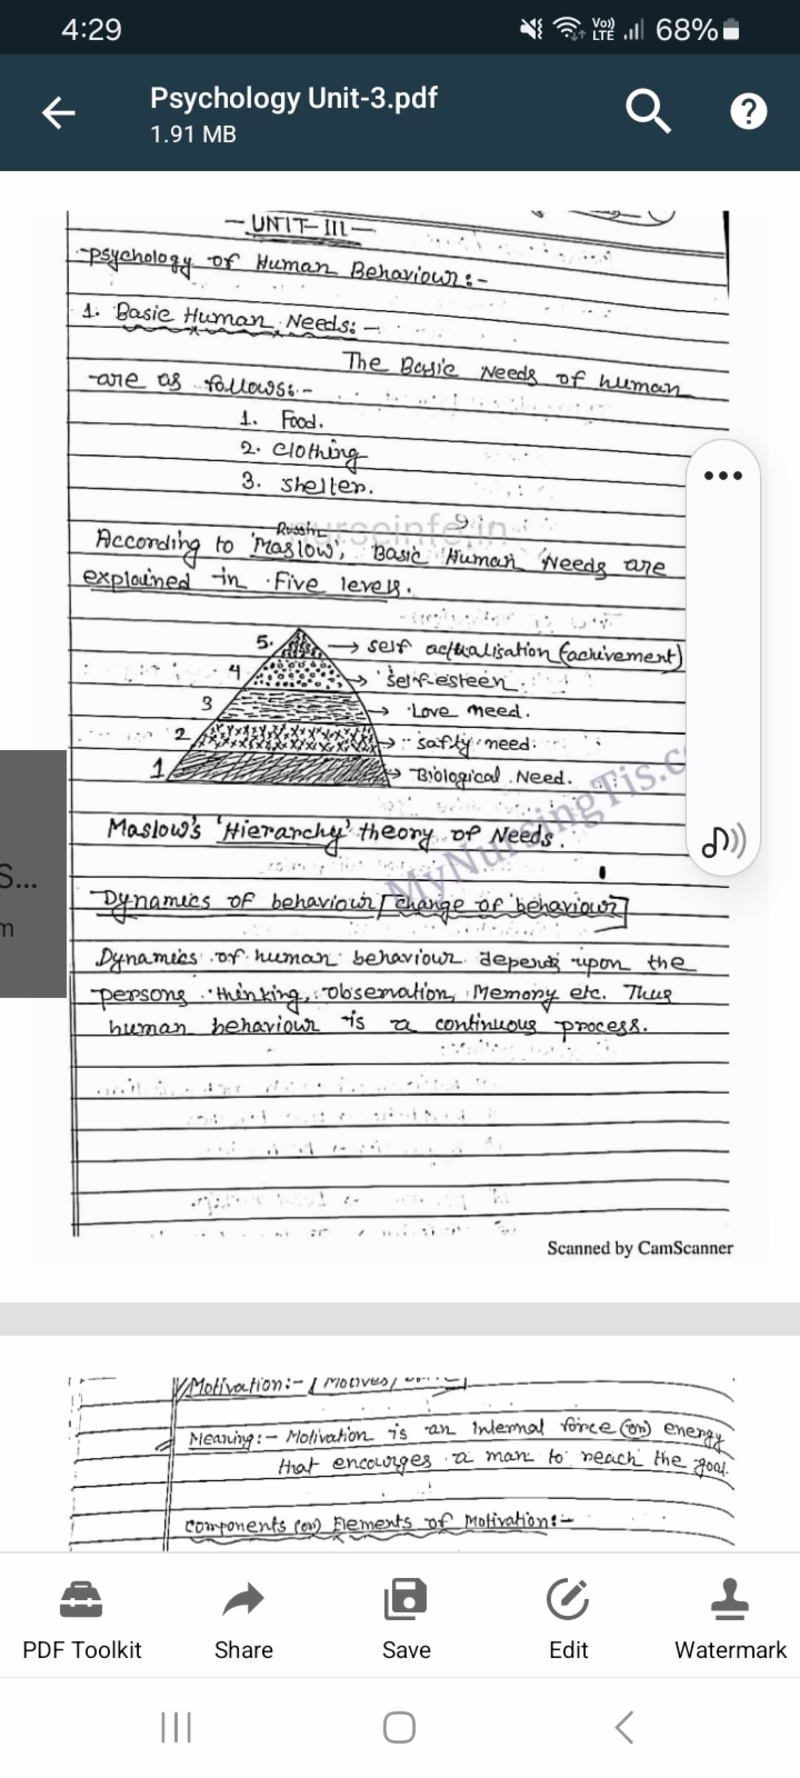 4:29
Vo)) LTE 68%
Psychology Unit-3.pdf
1.91 MB
- UNIT-III -
-psychology of Human Behaviour:-
1. Basic Human Needs:-
The Basic Needs of human
are as follows:-
1. Food.
2. clothing
3. shelter.
nurseinfo.in
According to 'Maslow', Basic Human Needs are
explained in Five levels.
5. → self actualisation (achivement)
4 → self-esteen.
3 → Love need.
2 → safty need.
1 → Biological Need.
MyNursingTis.c
Maslow's 'Hierarchy' theory of Needs.
Dynamics of behaviour [change of behaviour]
S...
m
Dynamics of human behaviour depends upon the
persons thinking, observation, Memory etc. Thus
human behaviour is a continuous process.
Scanned by CamScanner
Motivation:- [Motives/
Meaning:- Motivation is an internal force (or) energy
that encourges a man to reach the goal.
components (or) Elements of Motivation:-
PDF Toolkit
Share
Save
Edit
Watermark